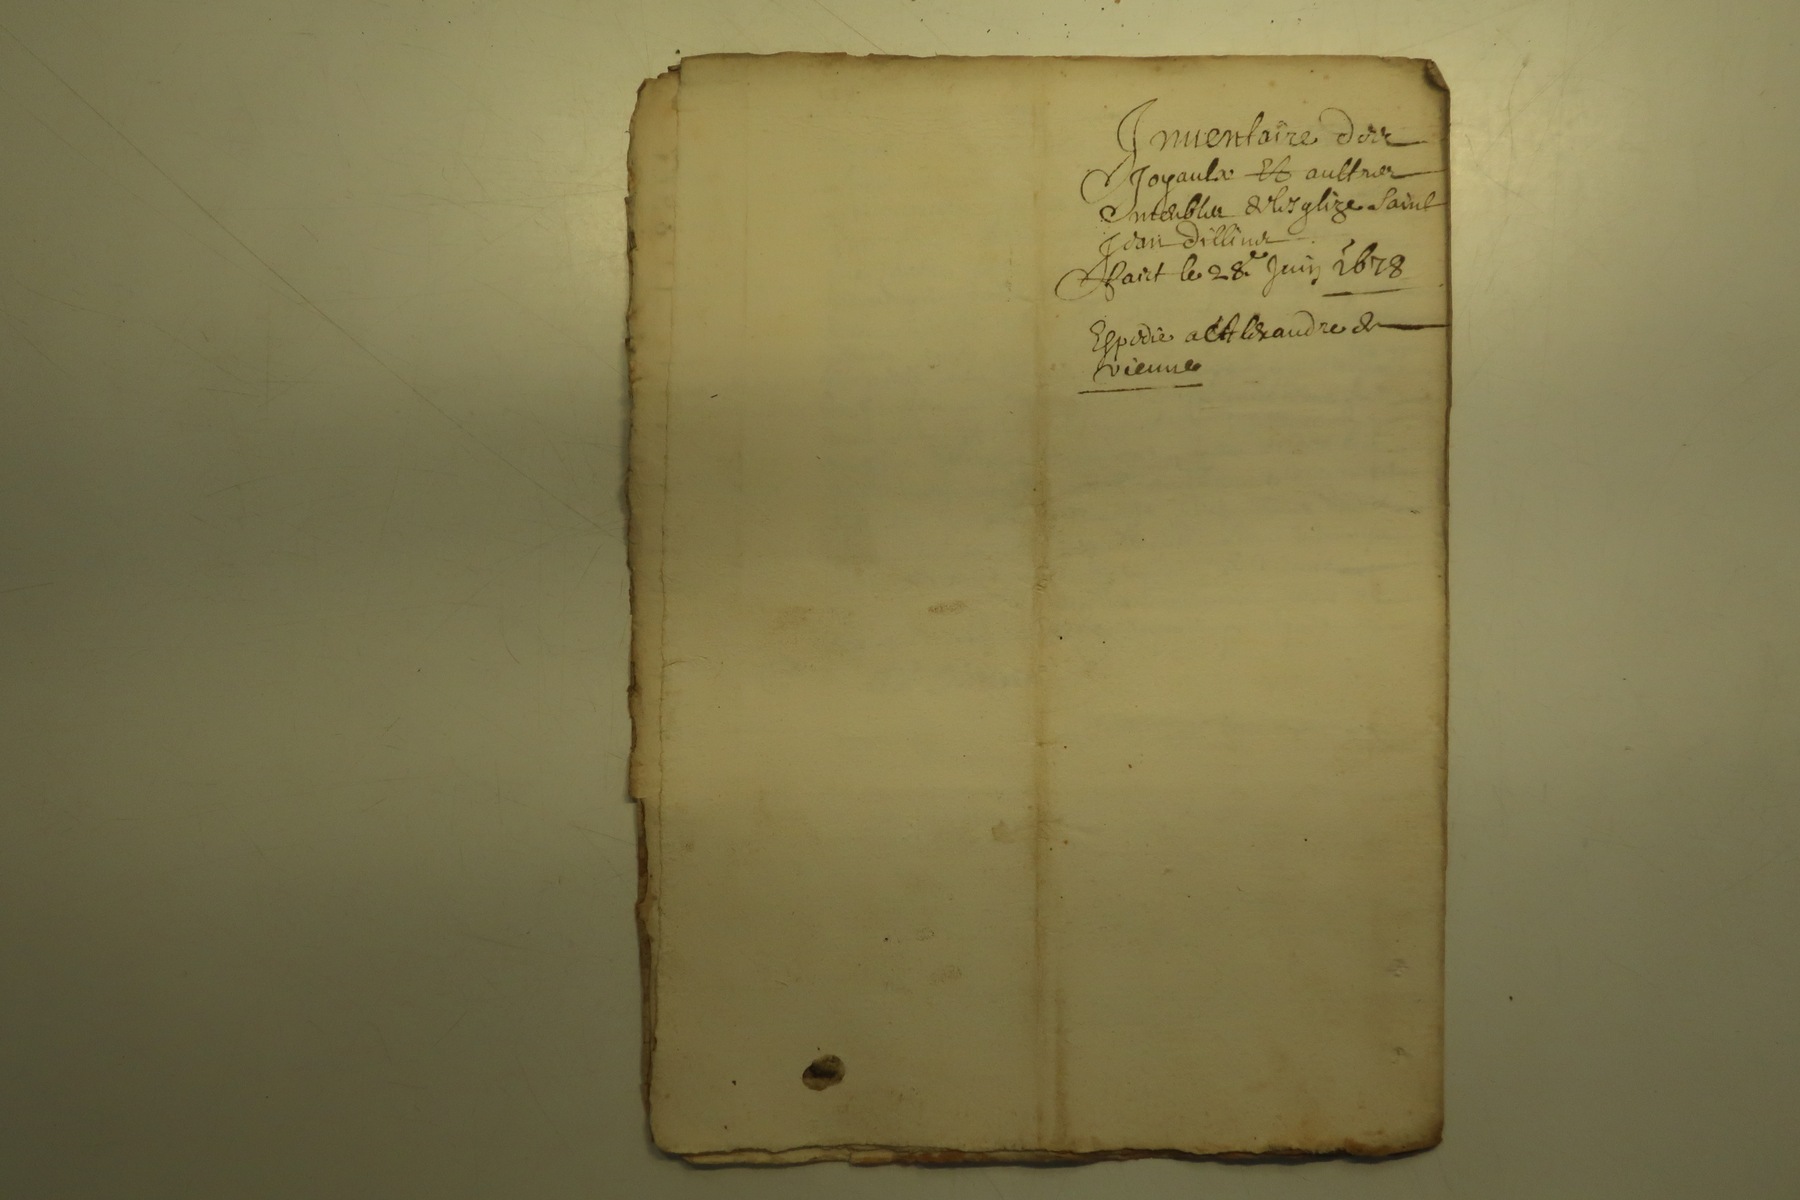 Inventaire des
Joyaulx et aultres
meubles de lesglize Saint
Jean
Faict le 28e Juin 1678
Espedié a Alexandre de
vienne